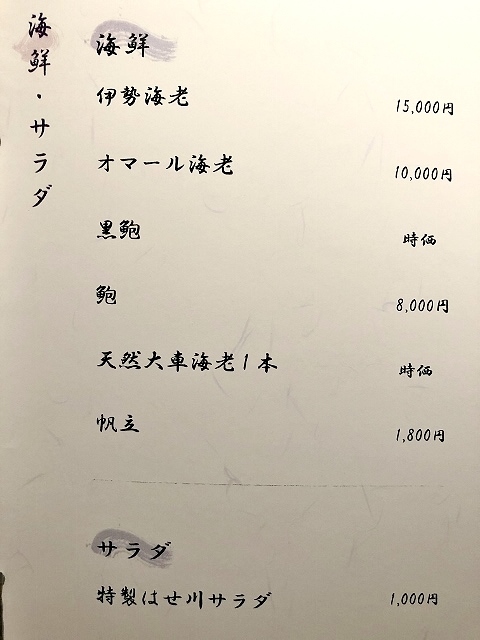 海鮮・サラダ
海鮮
伊勢海老 15,000円
オマール海老 10,000円
黒鮑 時価
鮑 8,000円
天然大車海老1本 時価
帆立 1,800円
サラダ
特製はせ川サラダ 1,000円